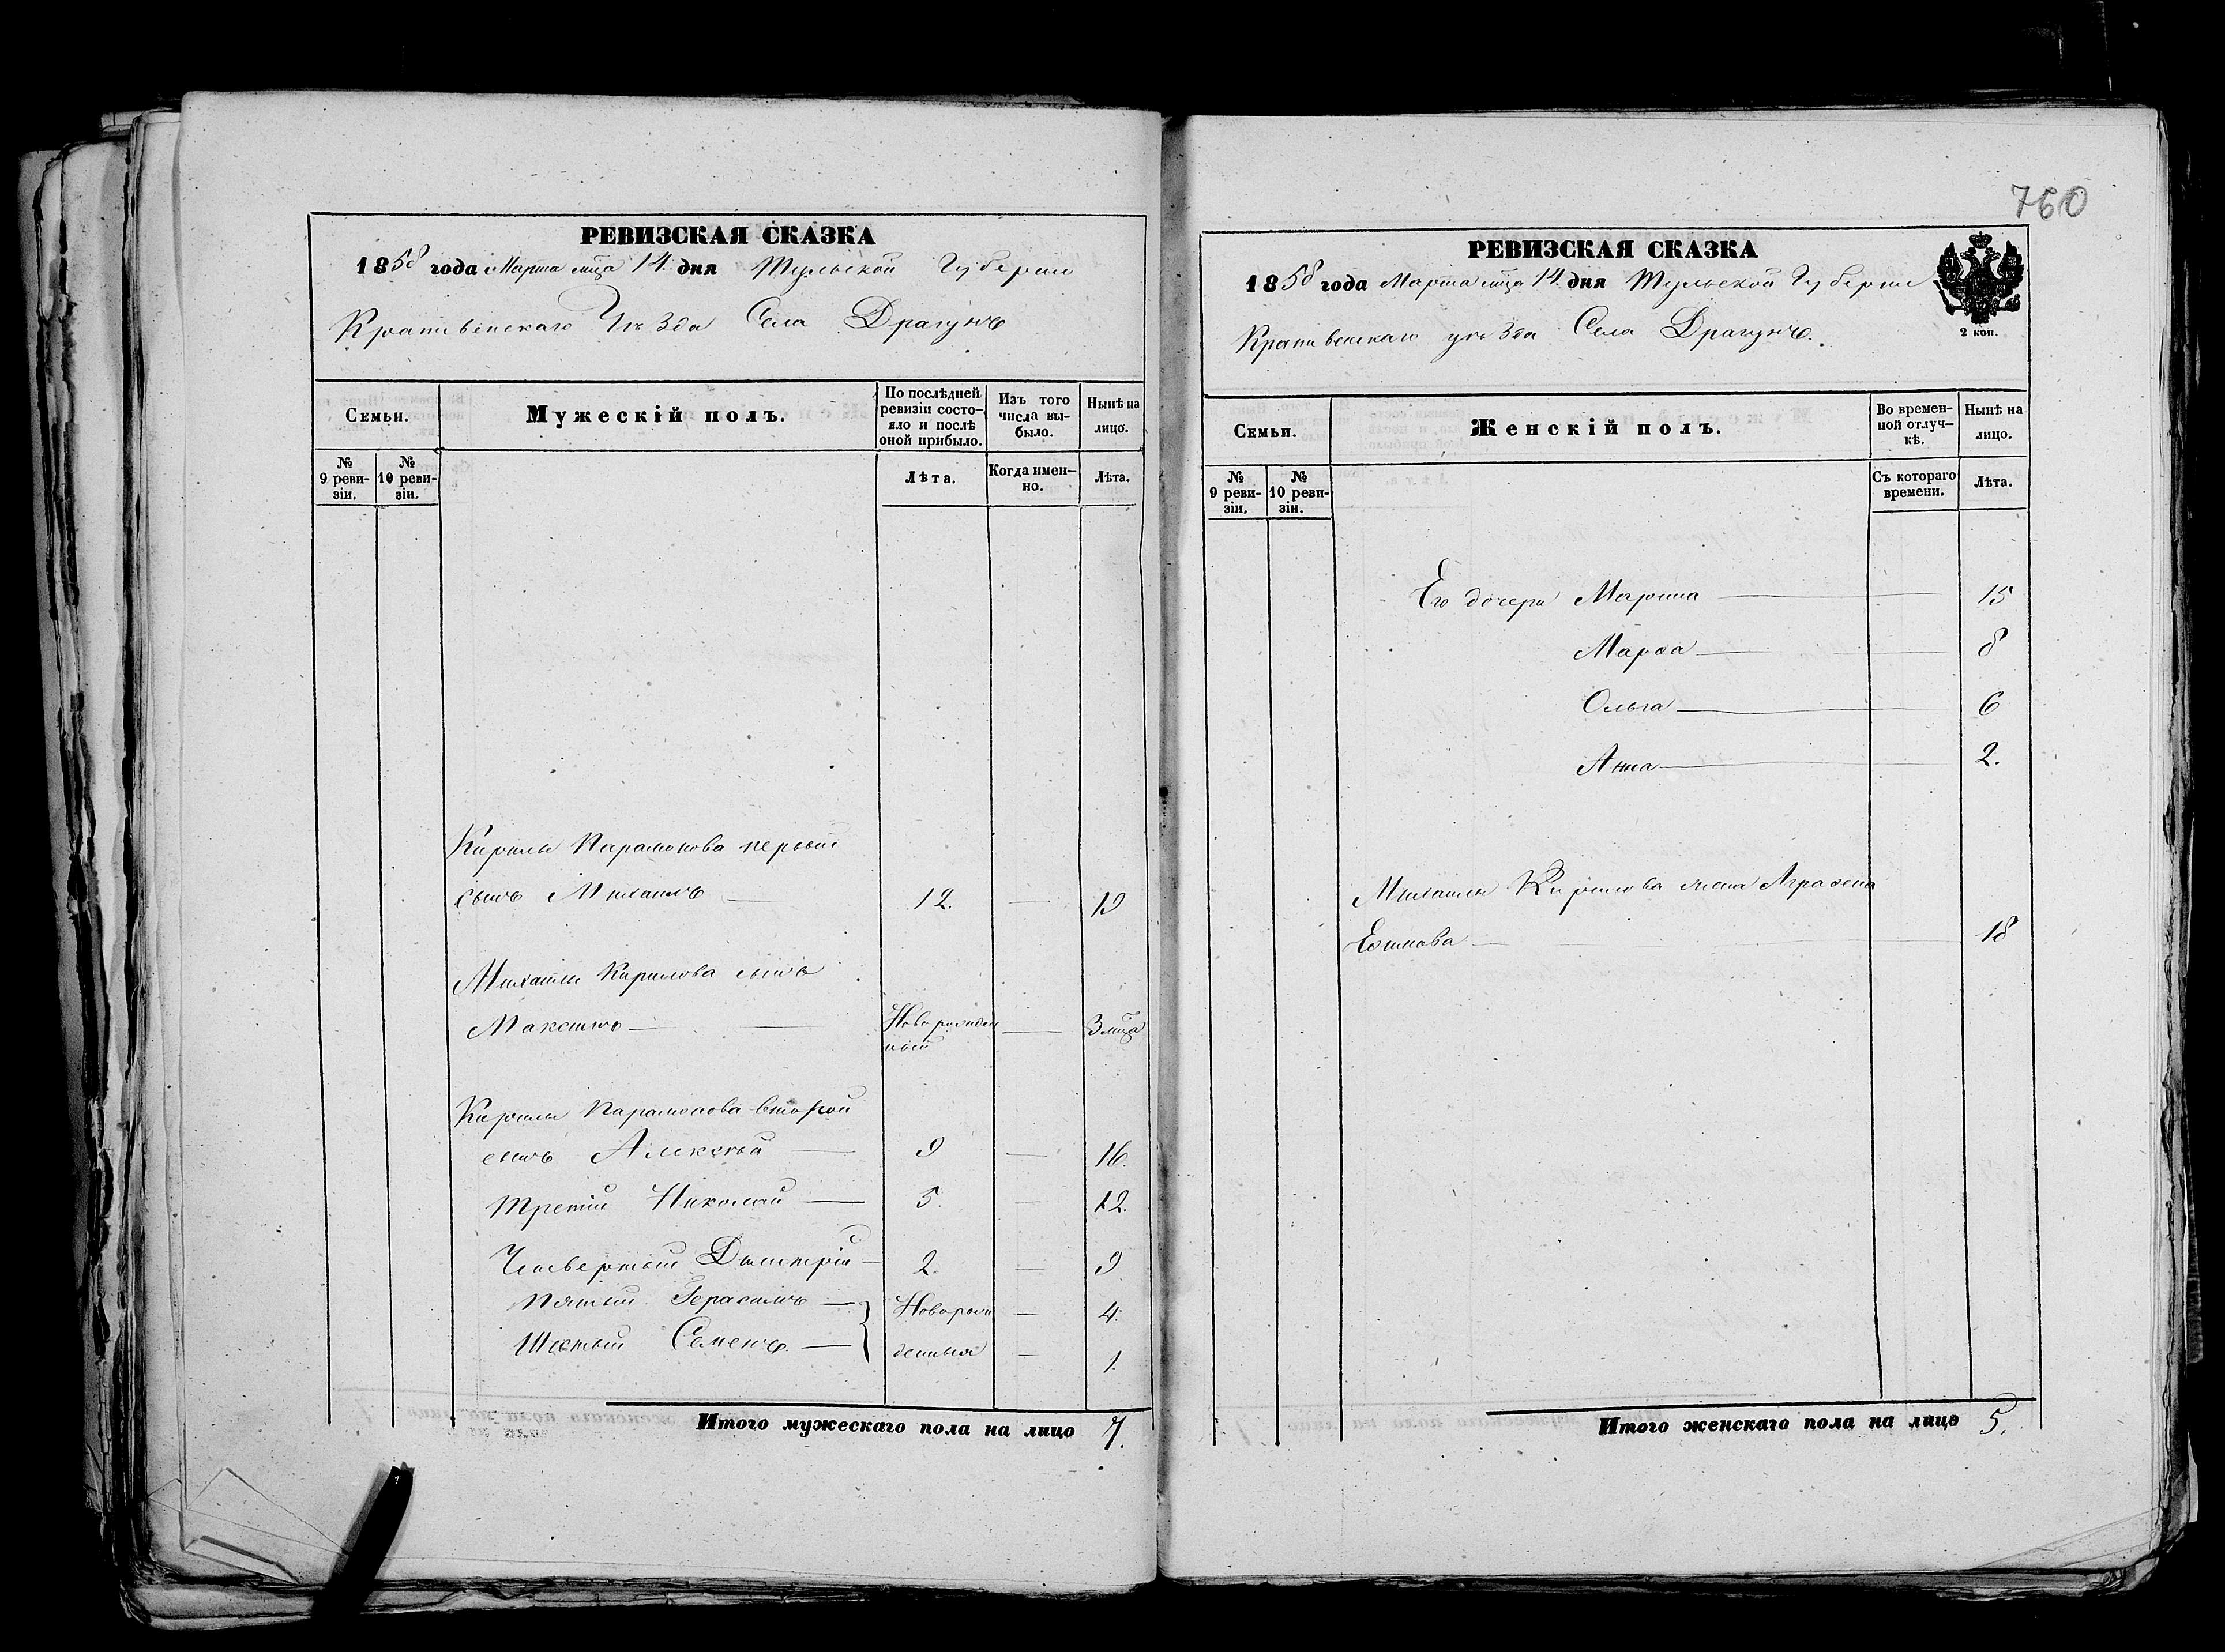 РЕВИЗСКАЯ СКАЗКА
1858 года Марта мца 14 дня Тульской Губерніи
Крапивенскаго Уѣзда Села Драгунъ
Семьи.
Мужескій полъ.
По послѣдней ревизіи состо-
яло и послѣ
оной прибыло.
Изъ того
числа вы-
было.
Нынѣ на
лицо.
№
9 реви-
зіи.
№
10 реви-
зіи.
Лѣта.
Когда имен-
но.
Лѣта.
Кирилы Парамонова первый
сынъ Михаилъ 12. 19
Михаилы Кирилова сынъ
Максимъ Новорожден
ный 3 мца
Кирилы Парамонова второй
сынъ Алексѣй 9 16.
третій Николай 5. 12.
Четвертый Дмитрій 2. 9
пятый Герасимъ Новорож 4.
Шестый Семенъ. денныя 1.
Итого мужескаго пола на лицо 7.
760
РЕВИЗСКАЯ СКАЗКА
1858 года Марта мца 14. дня Тульской Губерніи
2 коп.
Крапивенскаго уѣзда Села Драгунъ.
Семьи.
Женскій полъ.
Во времен-
ной отлуч-
кѣ.
Нынѣ на
лицо.
№
9 реви-
зіи.
№
10 реви-
зіи.
Съ котораго
времени.
Лѣта.
Его дочери Марина 15
Марѳа 8
Ольга 6
Анна 2.
Михаилы Кирилова жена Аграѳена
18
Итого женскаго пола на лицо 5.